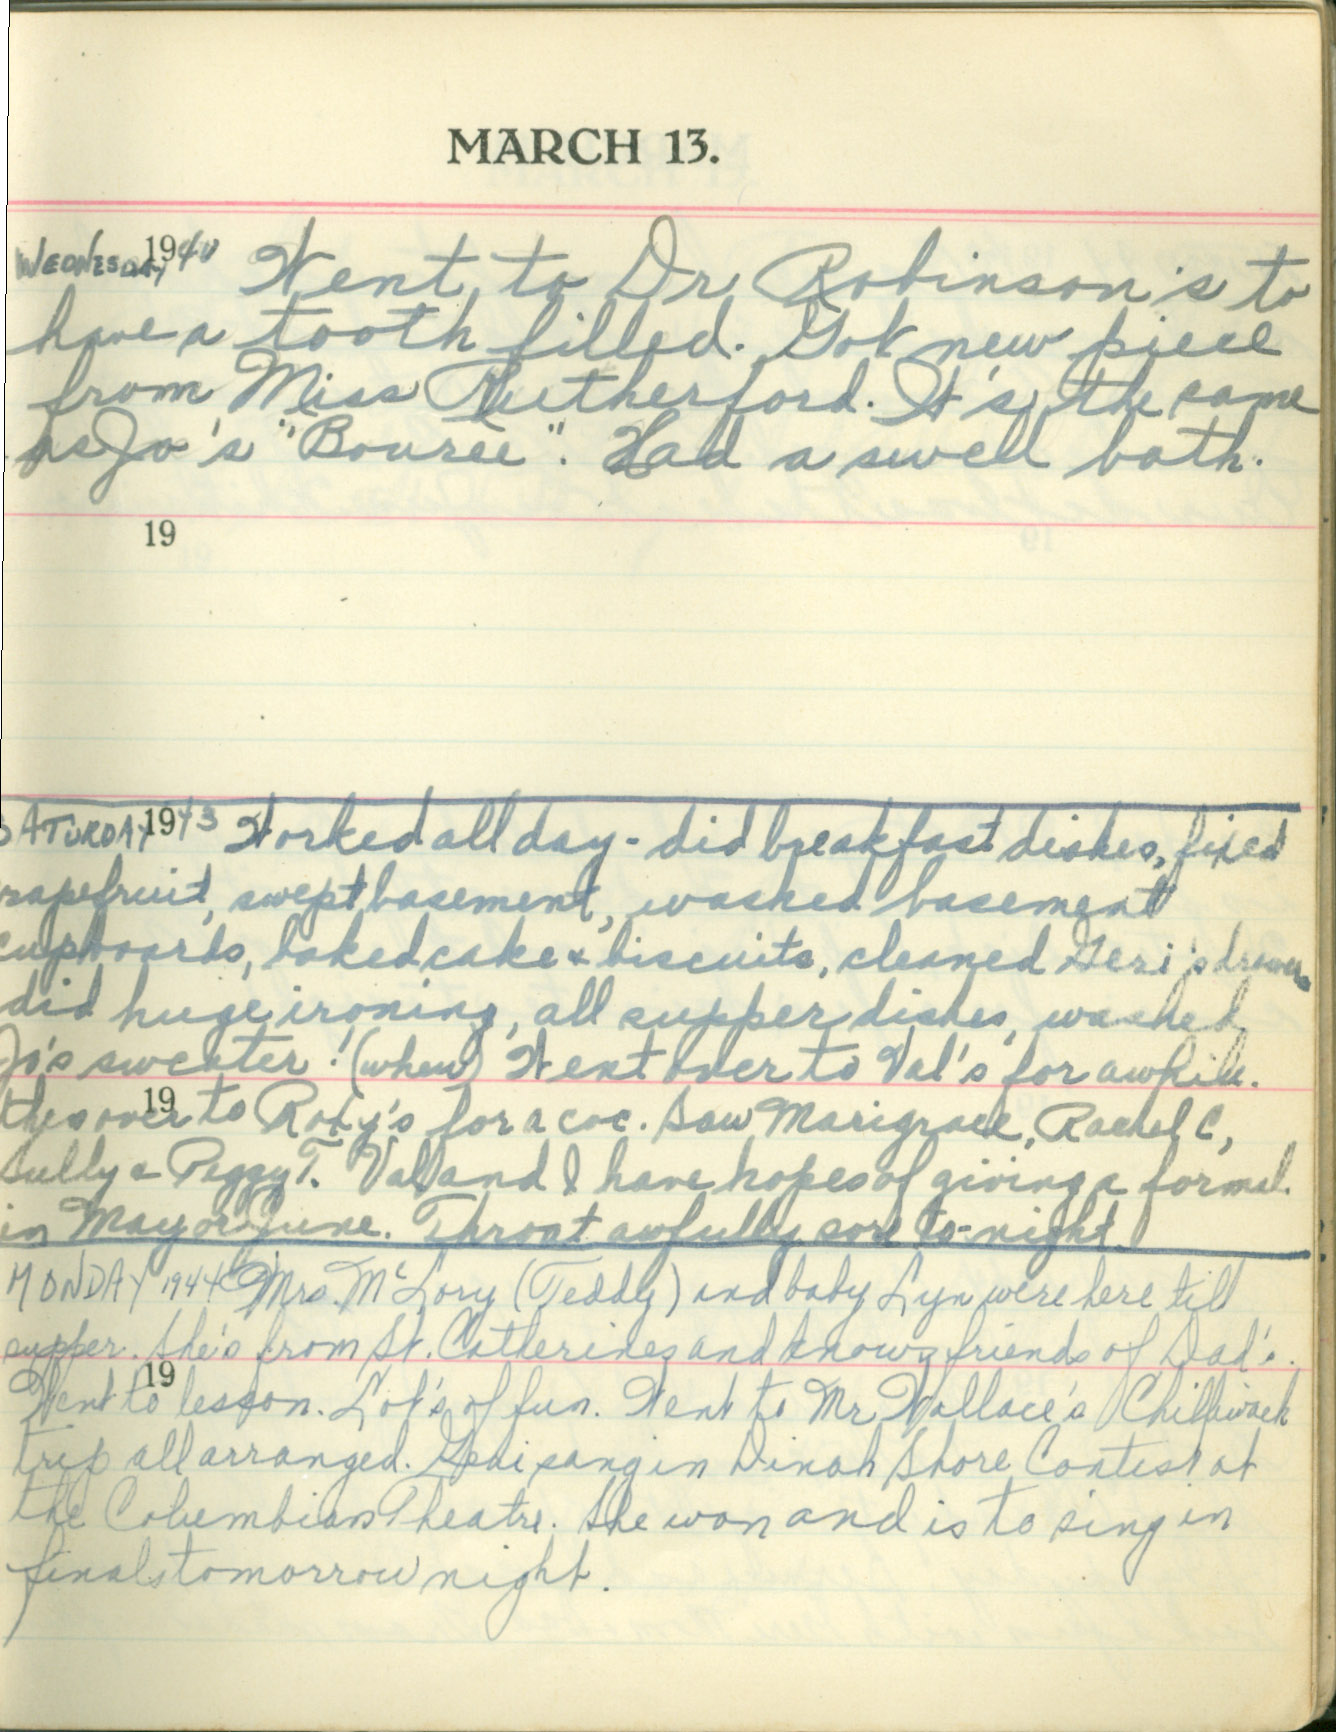 MARCH 13.
WEDNESDAY 1940 Went to Dr. Robinson's to
have a tooth filled. Got new piece
from Miss Rutherford. It's the same
as Jo's "Bouree". Had a swell bath.
19
SATURDAY 1943 Worked all day - did breakfast dishes, fixed
rapefruit, swept basement, washed basement
cupboards, baked cake & biscuits, cleaned Geri's drawer,
did huge ironing, all supper dishes, washed
Jo's sweater! (whew) Went over to Val's for awhile.
19
then over to Roxy's for a coc. Saw Marigrace, Rachel C,
Sully & Peggy T. Val and I have hopes of giving a formal
in May or June. Throat awfully sore to-night.
MONDAY 1944 Mrs. McLory (Teddy) and baby Lyn were here till
supper. She's from St. Catherines and knows friends of Dad's.
19
Went to lesson. Lot's of fun. Went to Mr Wallace's Chilliwack
trip all arranged. Geri sang in Dinah Shore Contest at
the Columbian Theatre. She won and is to sing in
finals tomorrow night.